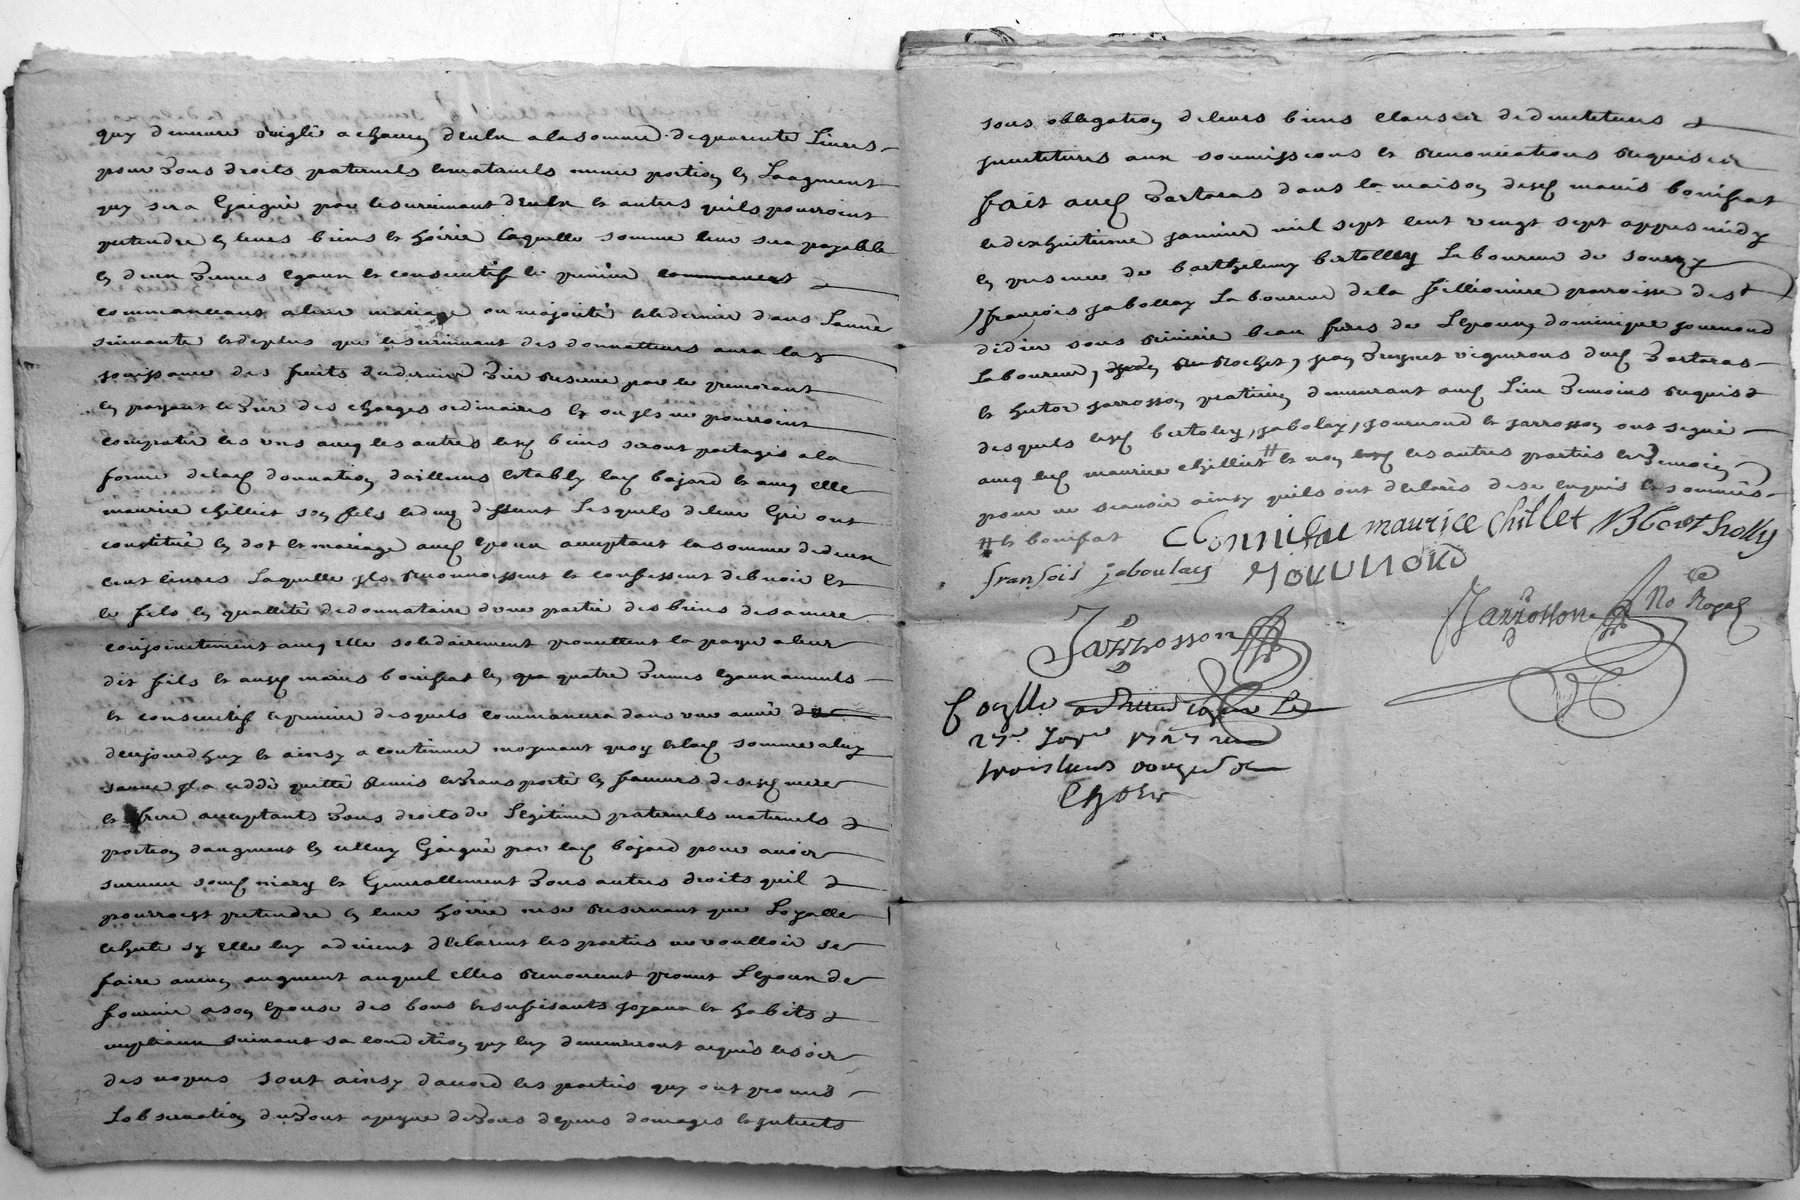 quy demeure reiglé a chacun d'eulx a la somme de quarente Livres
pour tous droits paternels et maternels mesme portion en Laugment
quy sera Gaigné par le survivant d'eulx et autres quils pourroint
pretendre en leurs biens et hoirie laquelle somme leur sera payable
en deux termes egaux et consecutifs le premier
commanceant a leur mariage ou majorité et le dernier dans Lannée
suivante et de plus que le survivant des donnatteurs aura la
jouissance des fruits du dernier tier reservé par le premorant
en payant le tier des charges ordinaires et ou jls ne pourroint
compatir les uns avec les autres lesd biens seront partagés a la
forme de lad donnation d'ailleurs establly lad bajard et avec elle
maurice chilliet son fils et dud deffunt Lesquels de leur Gré ont
constitué en dot et mariage aud epoux acceptant la somme de deux
cent livres Laquelle jls reconnoissent et confessent debvoir et
le fils en quallité de donnataire d'une partie des biens de sa mere
conjoinctement avec elle solidairement promettent la payer a leur
dit fils et ausd mariés bonifat en quatre termes egaux annuels
et consecutifs le premier desquels commancera dans une année
d'aujourdhuy et ainsy a continuer moyenant quoy et lad somme a luy
sauve jl a ceddé quitté remis et transporté en faveurs de sesd mere
et frere acceptants tous droits de Legitime paternels maternels
portion daugment en celluy Gaigné par lad bajard pour avoir
survecu sond mary et Generallement tous autres droits quil
pourroist pretendre en leur hoirie ne se reservant que Loyalle
echute sy elle luy advient declarent les parties ne voulloir se
faire aucun augment auquel elles renoncent promet Lepoux de
fournir a son epouse des bons et suffisants joyaux et habits
nuptiaux suivant sa condition quy luy demeureront acquis le soir
des nopces sont ainsy d'accord les parties quy ont promis
Lobservation du tout a peyne de tous depens domages et jnterets
sous obligation de leurs biens clauses de
aux soumissions et renonciations requises
fait aud tartaras dans la maison desd mariés bonifat
le dixhuitieme janvier mil sept cent vingt sept appres midy
en presence de barthelemy bertolley Laboureur de
françois jabollay Laboureur de la fillioniere parroisse de st
didier sous riviere beau freres de Lepoux, dominique journoud
Laboureur, rochet, jean vignerons dud tartaras
et hector jarrosson praticien demeurant aud Lieu temoins requis
desquels lesd bertoley, jabolay, journoud et jarrosson ont signé
avec led maurice chilliet # et non les autres parties et temoins
pour ne scavoir ainsy quils ont declarés de ce enquis et sommés
# et bonifat Bonnifat maurice chillet B bertholley
fransois jaboulay Journoud
Jarrosson Jarrosson No Royal
Conlle
27e
trois livres douze s